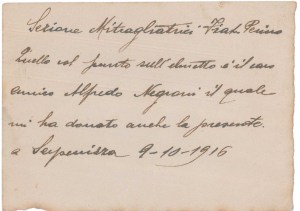 Sezione Mitragliatrici Frat. Perino
Quello col punto sull'elmetto è il caro
amico Alfredo Negroni il quale
mi ha donato anche la presente.
a Serpenizza 9-10-1916